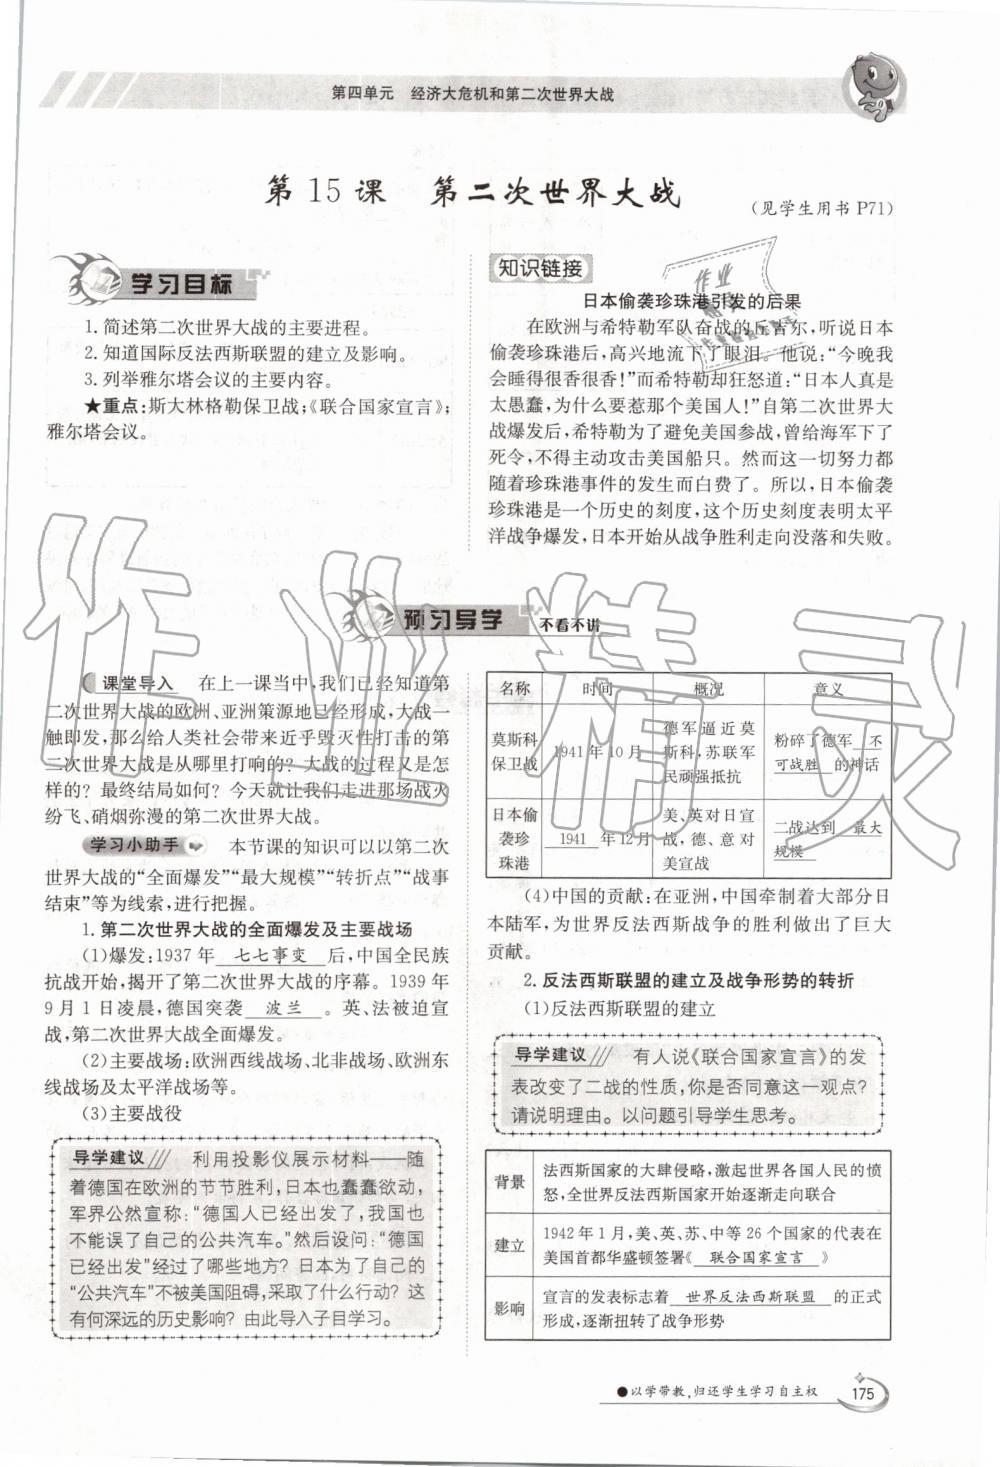 第四单元　经济大危机和第二次世界大战
第 15 课　第二次世界大战
(见学生用书 P71)
学习目标
1. 简述第二次世界大战的主要进程。
2. 知道国际反法西斯联盟的建立及影响。
3. 列举雅尔塔会议的主要内容。
★重点:斯大林格勒保卫战;《联合国家宣言》;
雅尔塔会议。
知识链接
日本偷袭珍珠港引发的后果
在欧洲与希特勒军队奋战的丘吉尔,听说日本
偷袭珍珠港后,高兴地流下了眼泪。他说:“今晚我
会睡得很香很香!”而希特勒却狂怒道:“日本人真是
太愚蠢,为什么要惹那个美国人!”自第二次世界大
战爆发后,希特勒为了避免美国参战,曾给海军下了
死令,不得主动攻击美国船只。然而这一切努力都
随着珍珠港事件的发生而白费了。所以,日本偷袭
珍珠港是一个历史的刻度,这个历史刻度表明太平
洋战争爆发,日本开始从战争胜利走向没落和失败。
预习导学　不看不讲
课堂导入　在上一课当中,我们已经知道第
二次世界大战的欧洲、亚洲策源地已经形成,大战一
触即发,那么给人类社会带来近乎毁灭性打击的第
二次世界大战是从哪里打响的? 大战的过程又是怎
样的? 最终结局如何? 今天就让我们走进那场战火
纷飞、硝烟弥漫的第二次世界大战。
学习小助手　本节课的知识可以以第二次
世界大战的“全面爆发”“最大规模”“转折点”“战事
结束”等为线索,进行把握。
1. 第二次世界大战的全面爆发及主要战场
(1)爆发:1937 年 七七事变 后,中国全民族
抗战开始,揭开了第二次世界大战的序幕。1939 年
9 月 1 日凌晨,德国突袭 波兰 。英、法被迫宣
战,第二次世界大战全面爆发。
(2)主要战场:欧洲西线战场、北非战场、欧洲东
线战场及太平洋战场等。
(3)主要战役
导学建议 /// 利用投影仪展示材料——随
着德国在欧洲的节节胜利,日本也蠢蠢欲动,
军界公然宣称:“德国人已经出发了,我国也
不能误了自己的公共汽车。”然后设问:“德国
已经出发”经过了哪些地方? 日本为了自己的
“公共汽车”不被美国阻碍,采取了什么行动? 这
有何深远的历史影响? 由此导入子目学习。
名称　时间　概况　意义
莫斯科
保卫战
1941 年 10 月
德军逼近莫
斯科,苏联军
民顽强抵抗
粉碎了德军 不
可战胜 的神话
日本偷
袭珍
珠港
1941 年 12 月
美、英对日宣
战,德、意对
美宣战
二战达到 最大
规模
(4)中国的贡献:在亚洲,中国牵制着大部分日
本陆军,为世界反法西斯战争的胜利做出了巨大
贡献。
2. 反法西斯联盟的建立及战争形势的转折
(1)反法西斯联盟的建立
导学建议 /// 有人说《联合国家宣言》的发
表改变了二战的性质,你是否同意这一观点?
请说明理由。以问题引导学生思考。
背景
法西斯国家的大肆侵略,激起世界各国人民的愤
怒,全世界反法西斯国家开始逐渐走向联合
建立
1942 年 1 月,美、英、苏、中等 26 个国家的代表在
美国首都华盛顿签署《 联合国家宣言 》
影响
宣言的发表标志着 世界反法西斯联盟 的正式
形成,逐渐扭转了战争形势
●以学带教,归还学生学习自主权
175
作业精灵